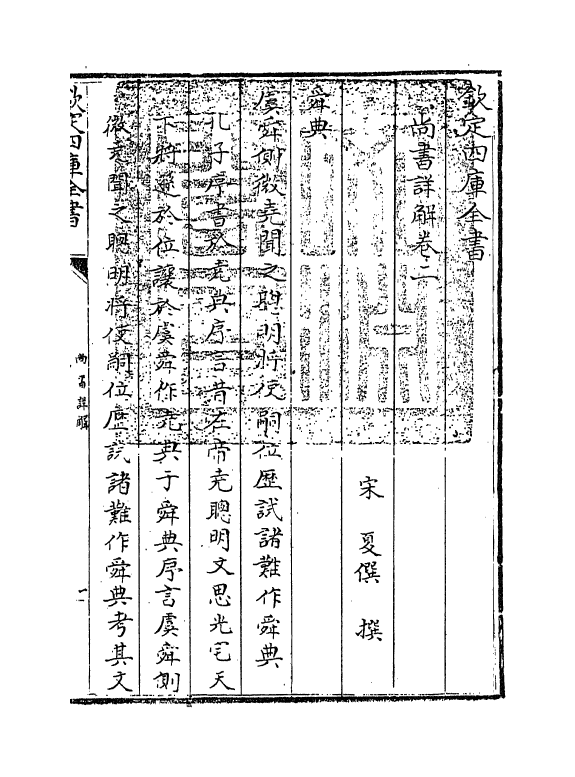 欽定四庫全書
尚書詳解卷二
宋 夏僎 撰
舜典
虞舜側微堯聞之聰明將使嗣位歷試諸難作舜典
孔子序書於堯典序言昔在帝堯聰明文思光宅天
下將遜於位讓於虞舜作堯典于舜典序言虞舜側
微堯聞之聰明將使嗣位歷試諸難作舜典考其文
欽定四庫全書
尚書詳解
一